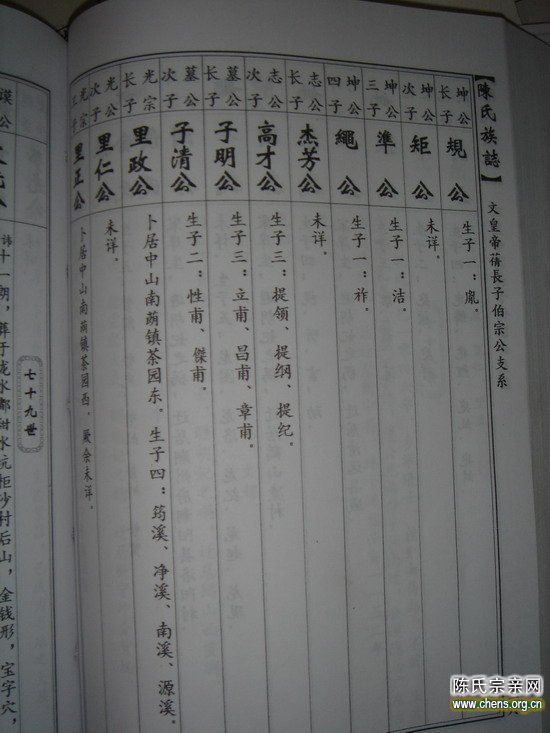 【陳氏族誌】 文皇帝蒨長子伯宗公支系
坤公长子 規公 生子一：胤。
坤公次子 矩公 未详。
坤公三子 準公 生子一：洁。
坤公四子 繩公 生子一：祚。
志公长子 杰芳公 未详。
志公次子 高才公 生子三：提领、提纲、提纪。
墓公长子 子明公 生子三：立甫、昌甫、章甫。
墓公次子 子清公 生子二：性甫、傑甫。
光宗公长子 里政公 卜居中山南蓢镇茶园东。生子四：筠溪、净溪、南溪、源溪。
光宗公次子 里仁公 未详。
光宗公三子 里正公 卜居中山南蓢镇茶园西。厥余未详。
七十九世
公 元公 讳十一朗，葬于龙水都甜水坑柜沙村后山，金钱形，宝字穴，
陈氏宗亲网
www.chens.org.cn